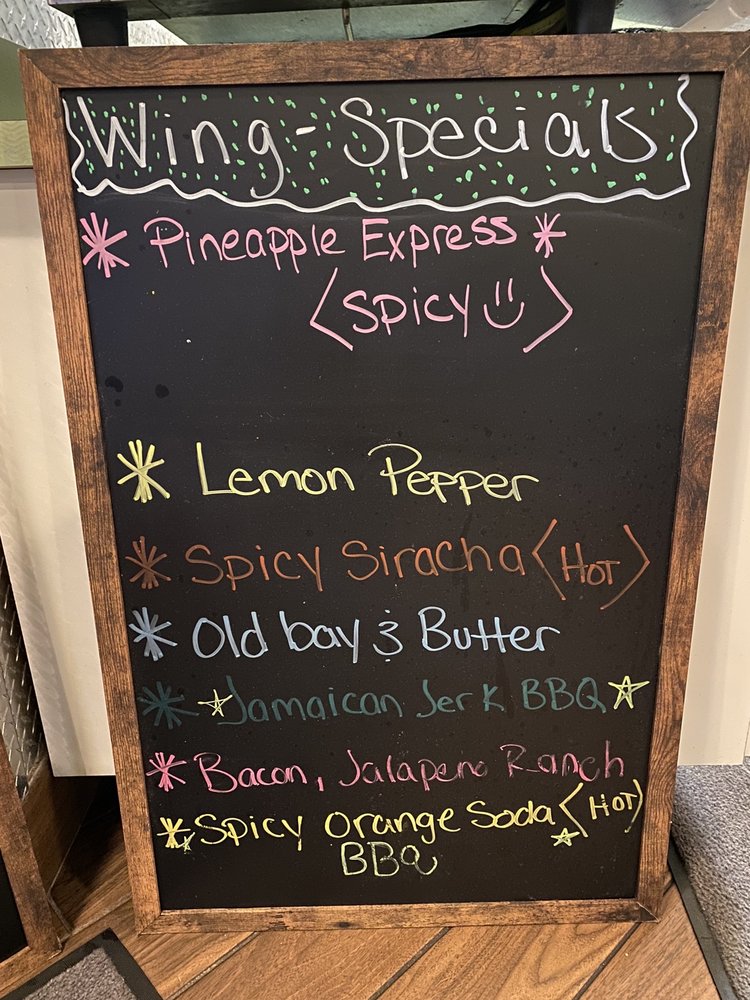 Wing-Specials
* Pineapple Express *
<Spicy>
* Lemon Pepper
* Spicy Siracha <Hot>
* Old bay & Butter
* Jamaican Jerk BBQ
* Bacon, Jalapeno Ranch
* Spicy Orange Soda <Hot>
BBQ